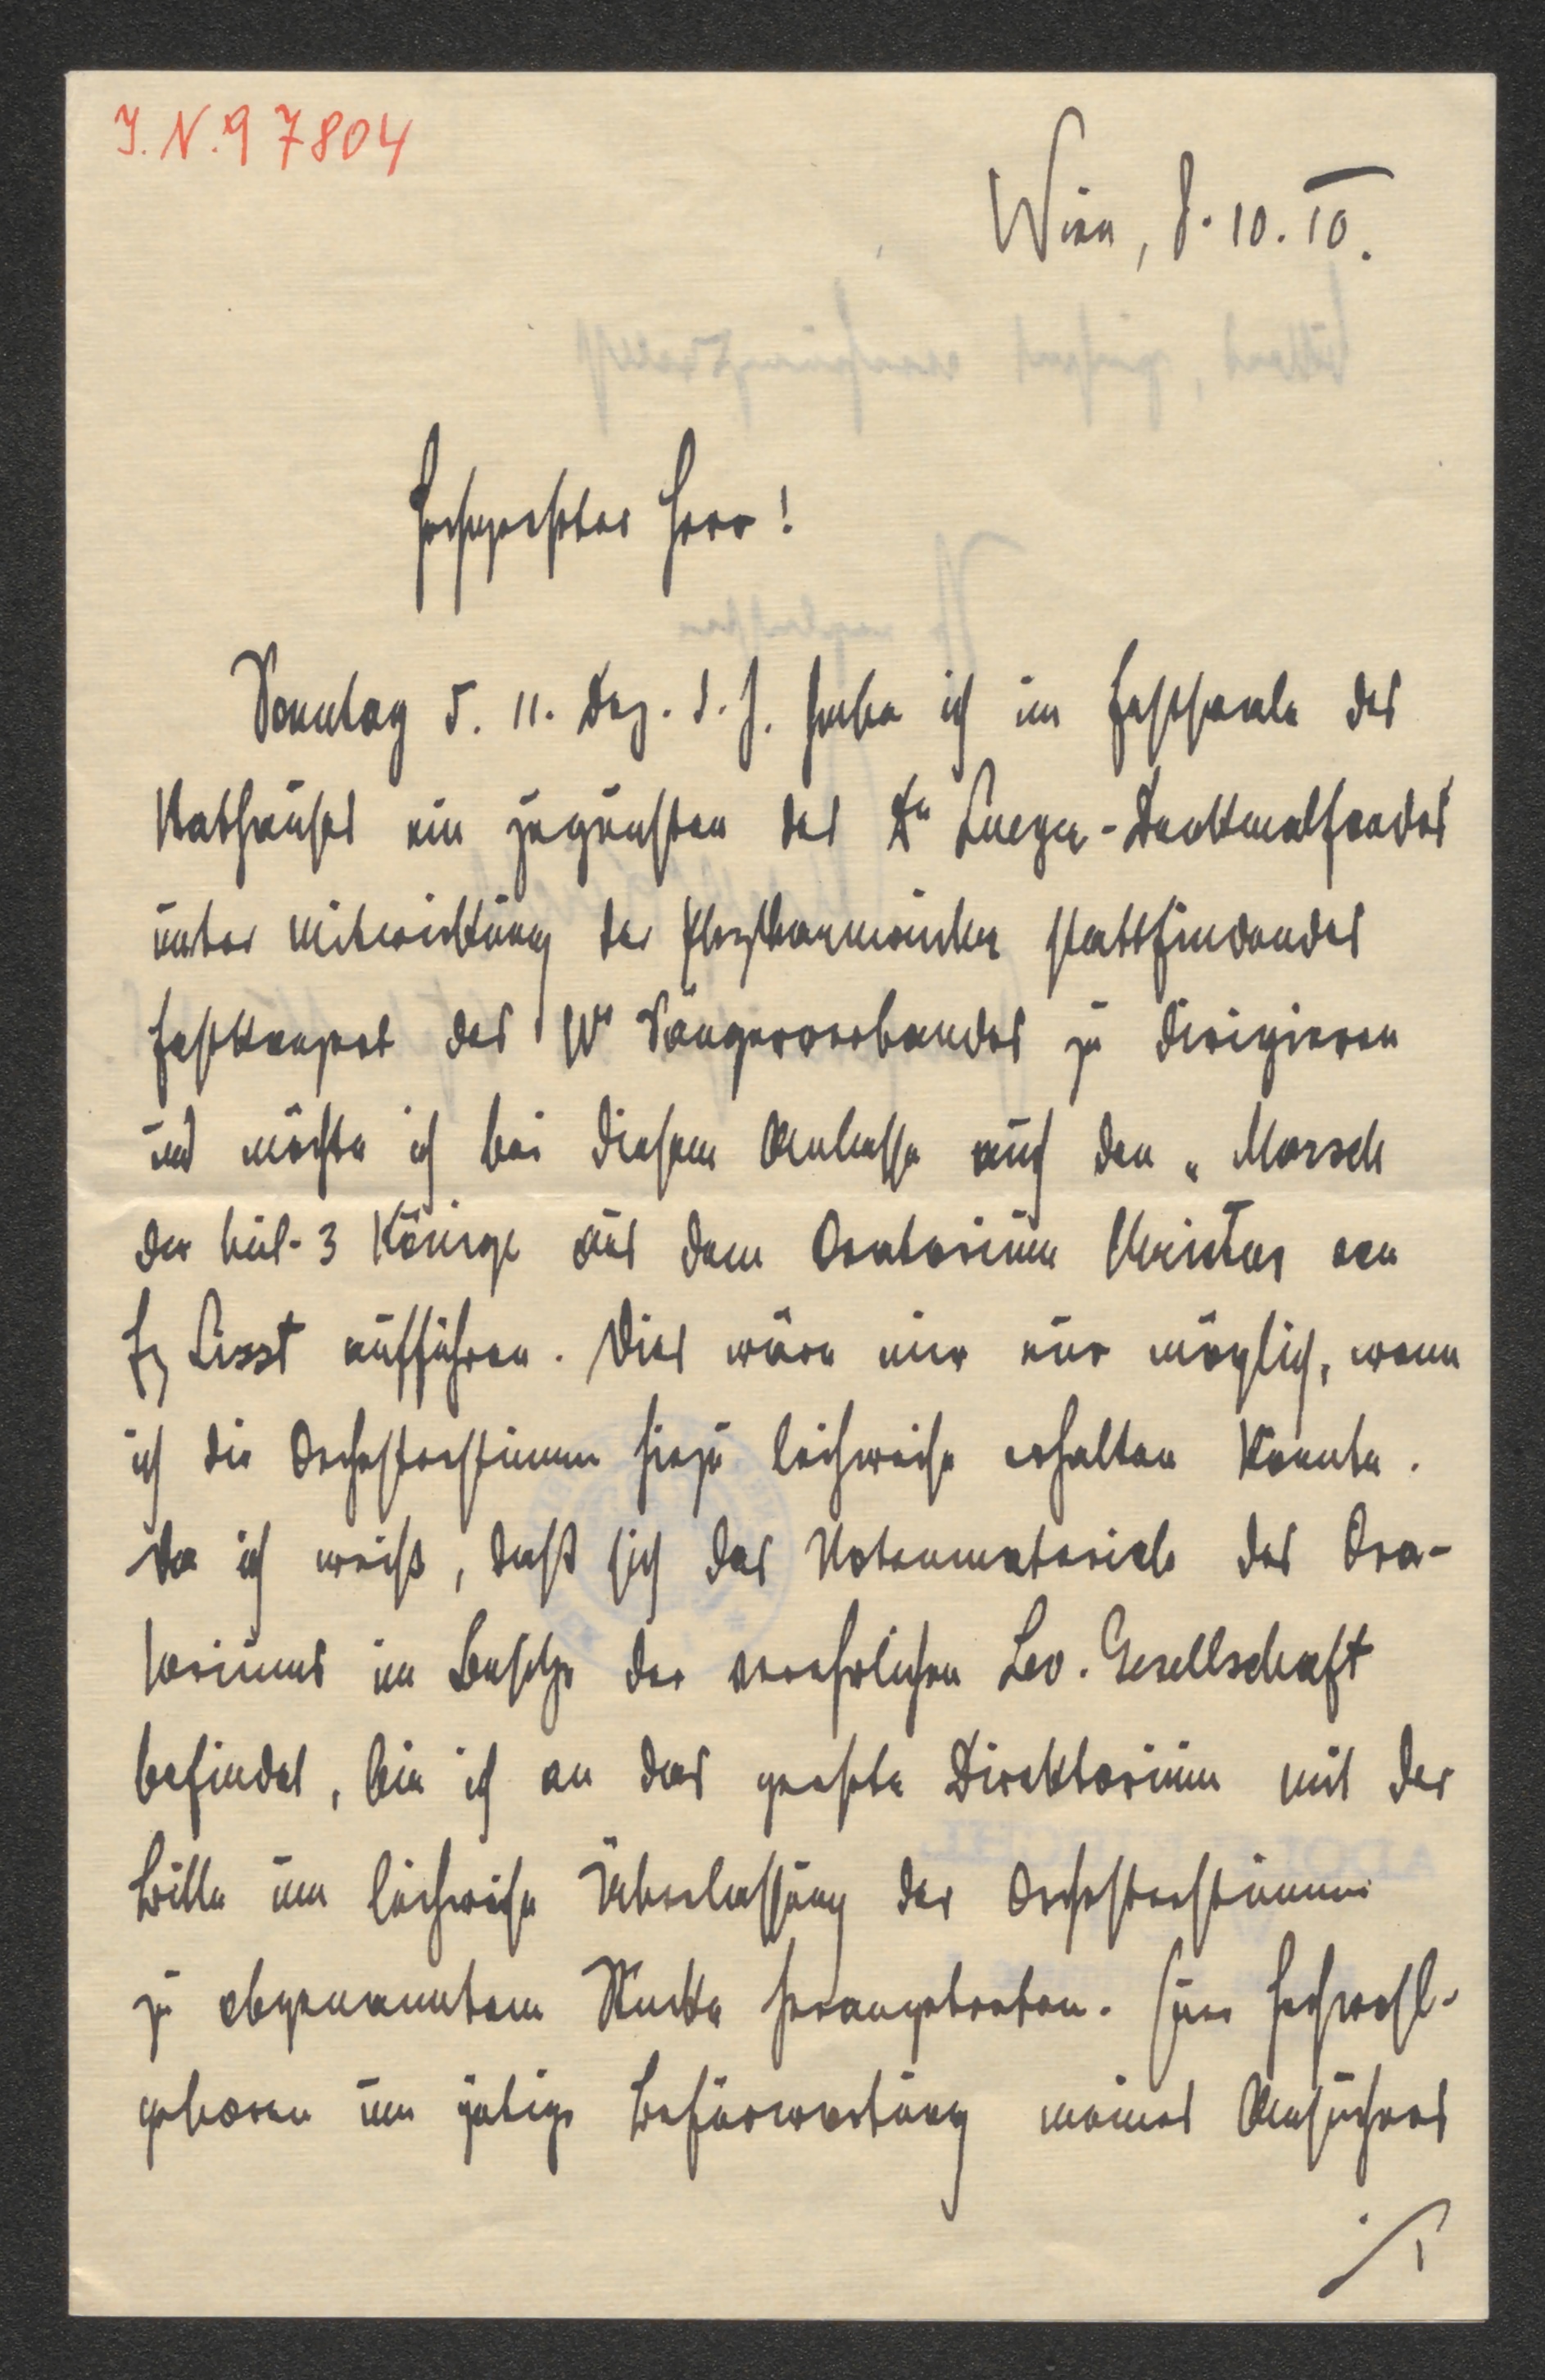 J. N. 97804
Wien, 8. 10. 10.
Hochgeehrter Herr!
Sonntag d. 11. Dez. d. J. habe ich im Festsaale des
Rathauses ein zugunsten des Dr Lueger-Denkmalfondes
unter Mitwirkung der Philharmoniker stattfindendes
Festkonzert des Wr Sängerverbandes zu dirigieren
und möchte ich bei diesem Anlasse auch den „Marsch
der heil. 3 Könige aus dem Oratorium Christus von
Fz Liszt aufführen. Dies wäre mir nur möglich, wenn
ich die Orchesterstimmen hiezu leihweise erhalten könnte.
Da ich weiß, daß sich das Notenmateriale des Ora-
toriums im Besitze der verehrlichen Leo. Gesellschaft
befindet, bin ich an das geehrte Direktorium mit der
Bitte um leihweise Überlassung der Orchesterstimmen
zu obgenanntem Stücke herangetreten. Euer Hochwohl-
geboren um gütige Befürwortung meines Ansuchens